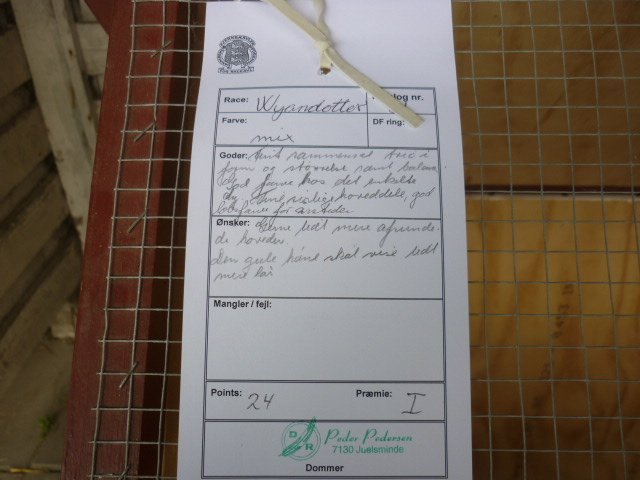 Race: Wyandotter
log nr.
Farve: mix
DF ring:
Goder: Fint sammensat trio i
form og størrelse samt balance
God farve hos det enkelte
dyr. Fine røde hoveddele, god
benfarve for årstiden
Ønsker: Gerne lidt mere afrunde-
de hoveder.
den gule høne skal vise lidt
mere
Mangler / fejl:
Points: 24
Præmie: I
D R
Peder Pedersen
7130 Juelsminde
Dommer